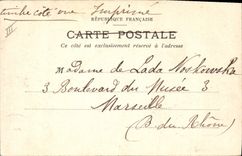 timbre côté vue Imprimé
RÉPUBLIQUE FRANÇAISE
CARTE POSTALE
Ce côté est exclusivement réservé à l'adresse
Madame de Lada Noskowska
3 Boulevard du Musée 3
Marseille
(B. du Rhône)
III